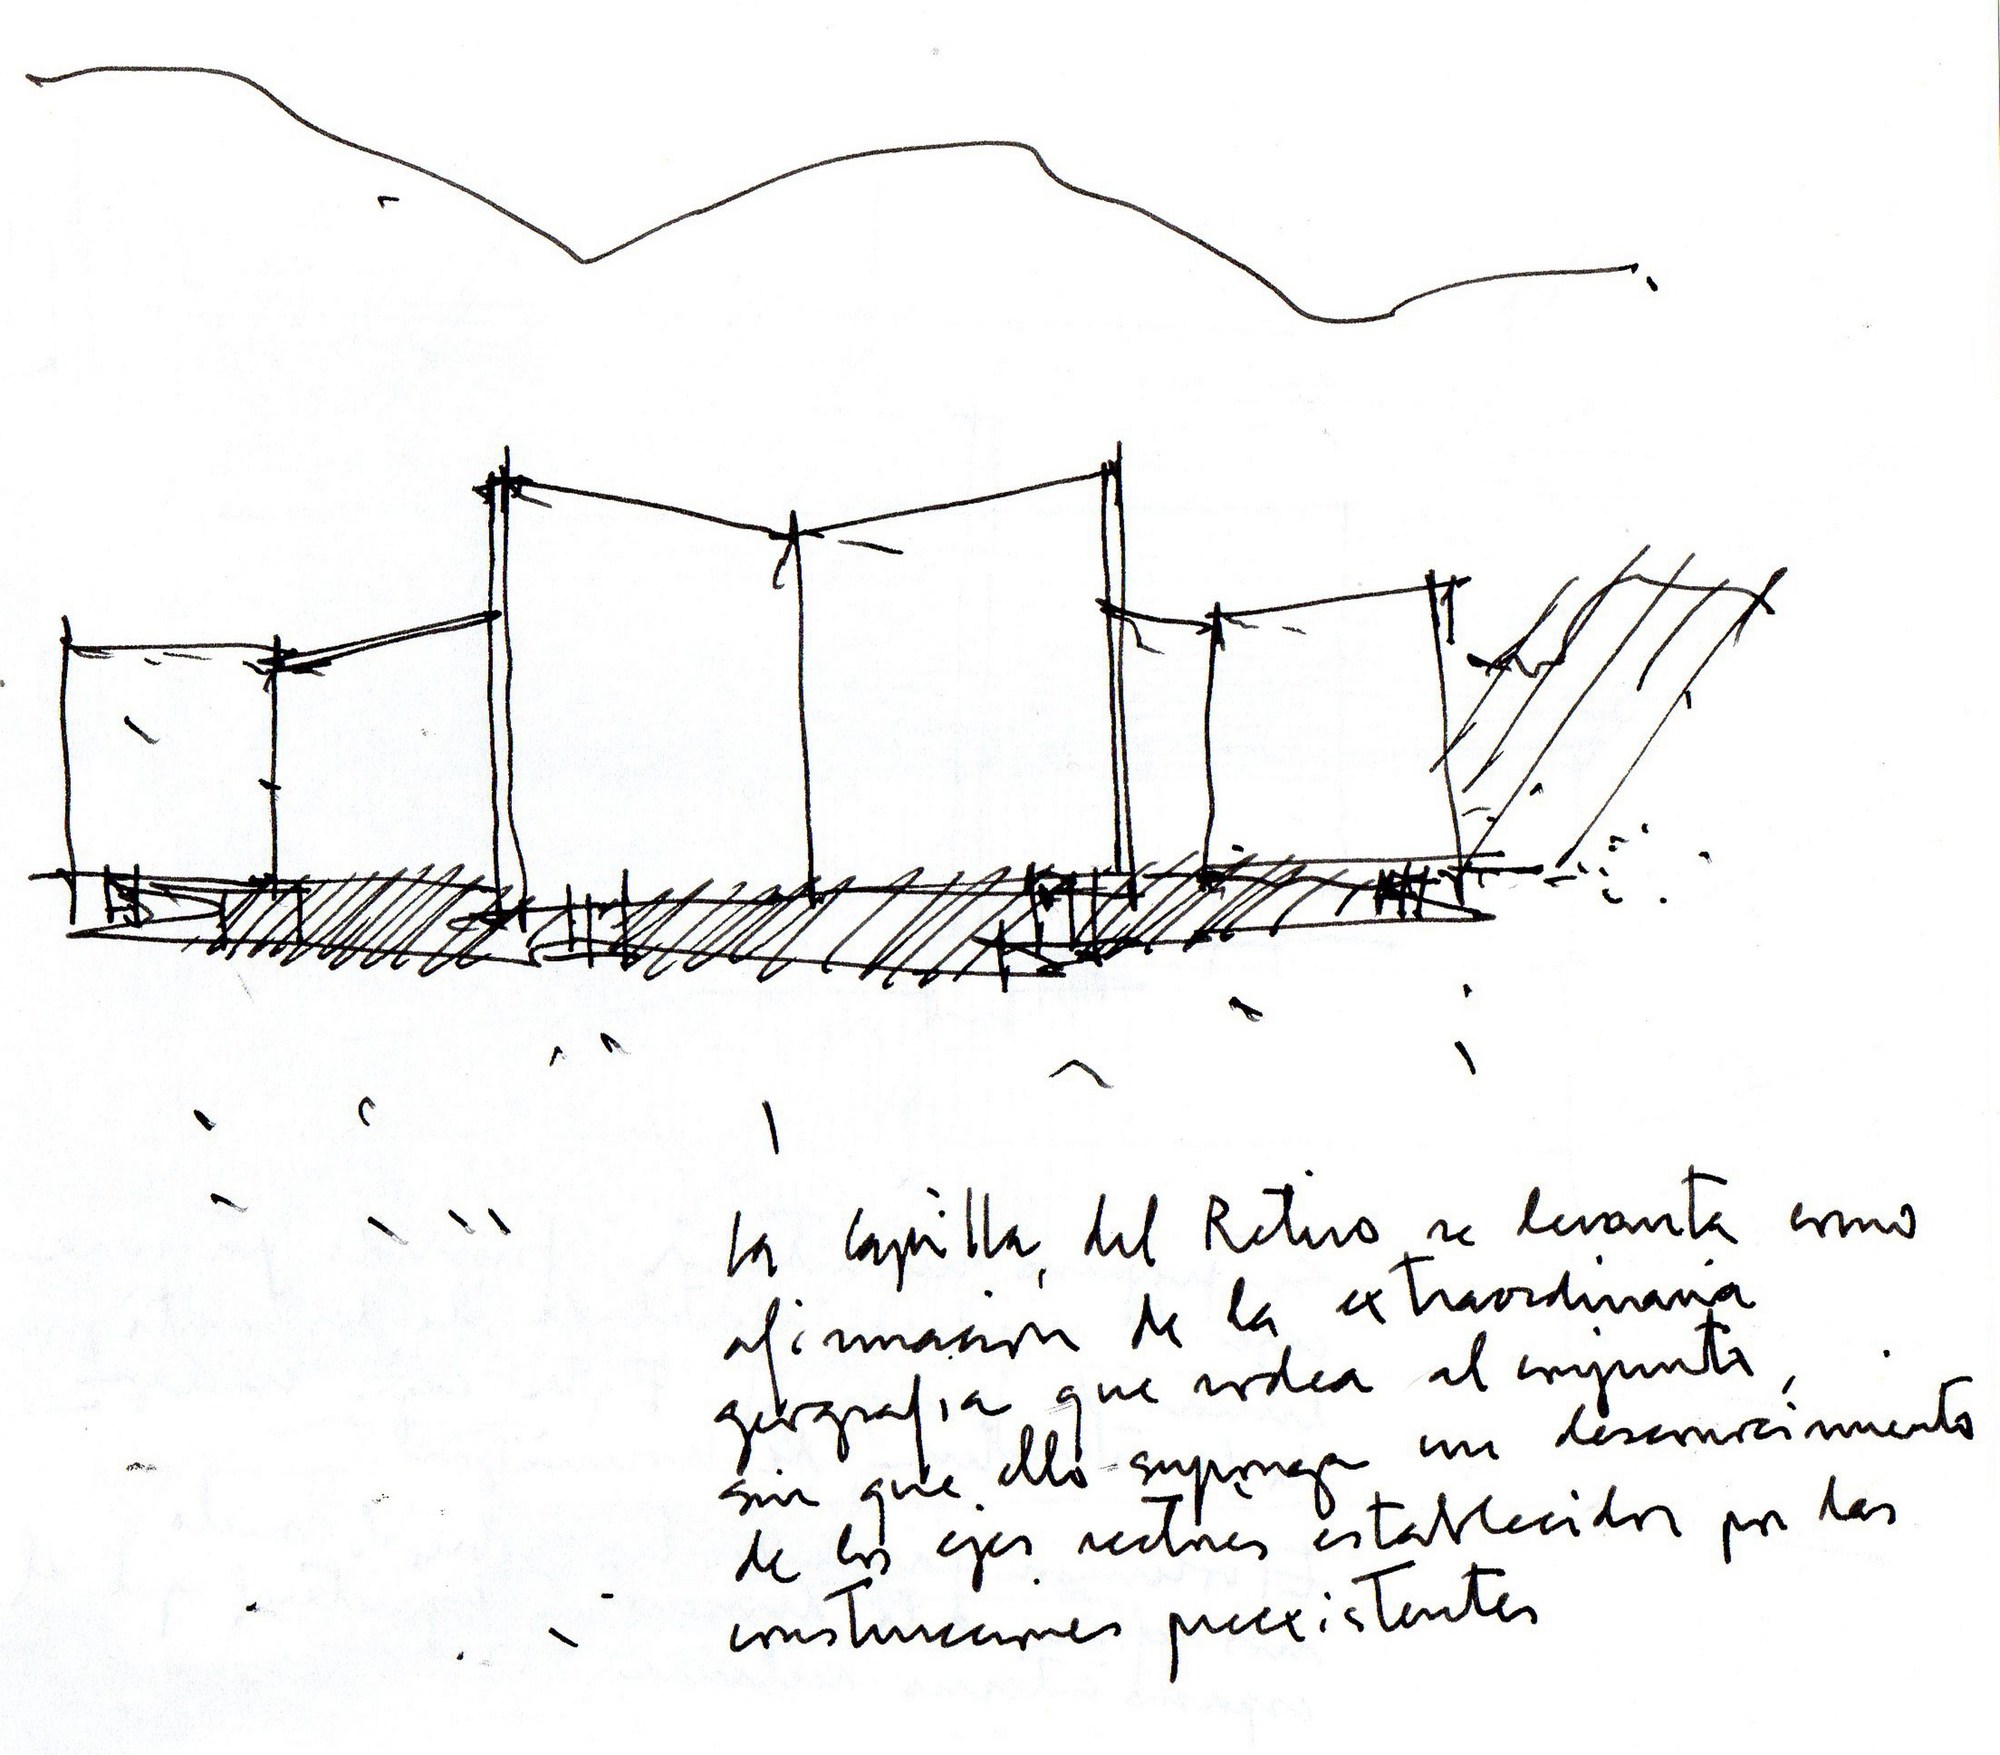 La Capilla del Retiro se levanta como
afirmación de la extraordinaria
geografía que rodea al conjunto,
sin que ello suponga un desconocimiento
de los ejes rectores establecidos por las
construcciones preexistentes